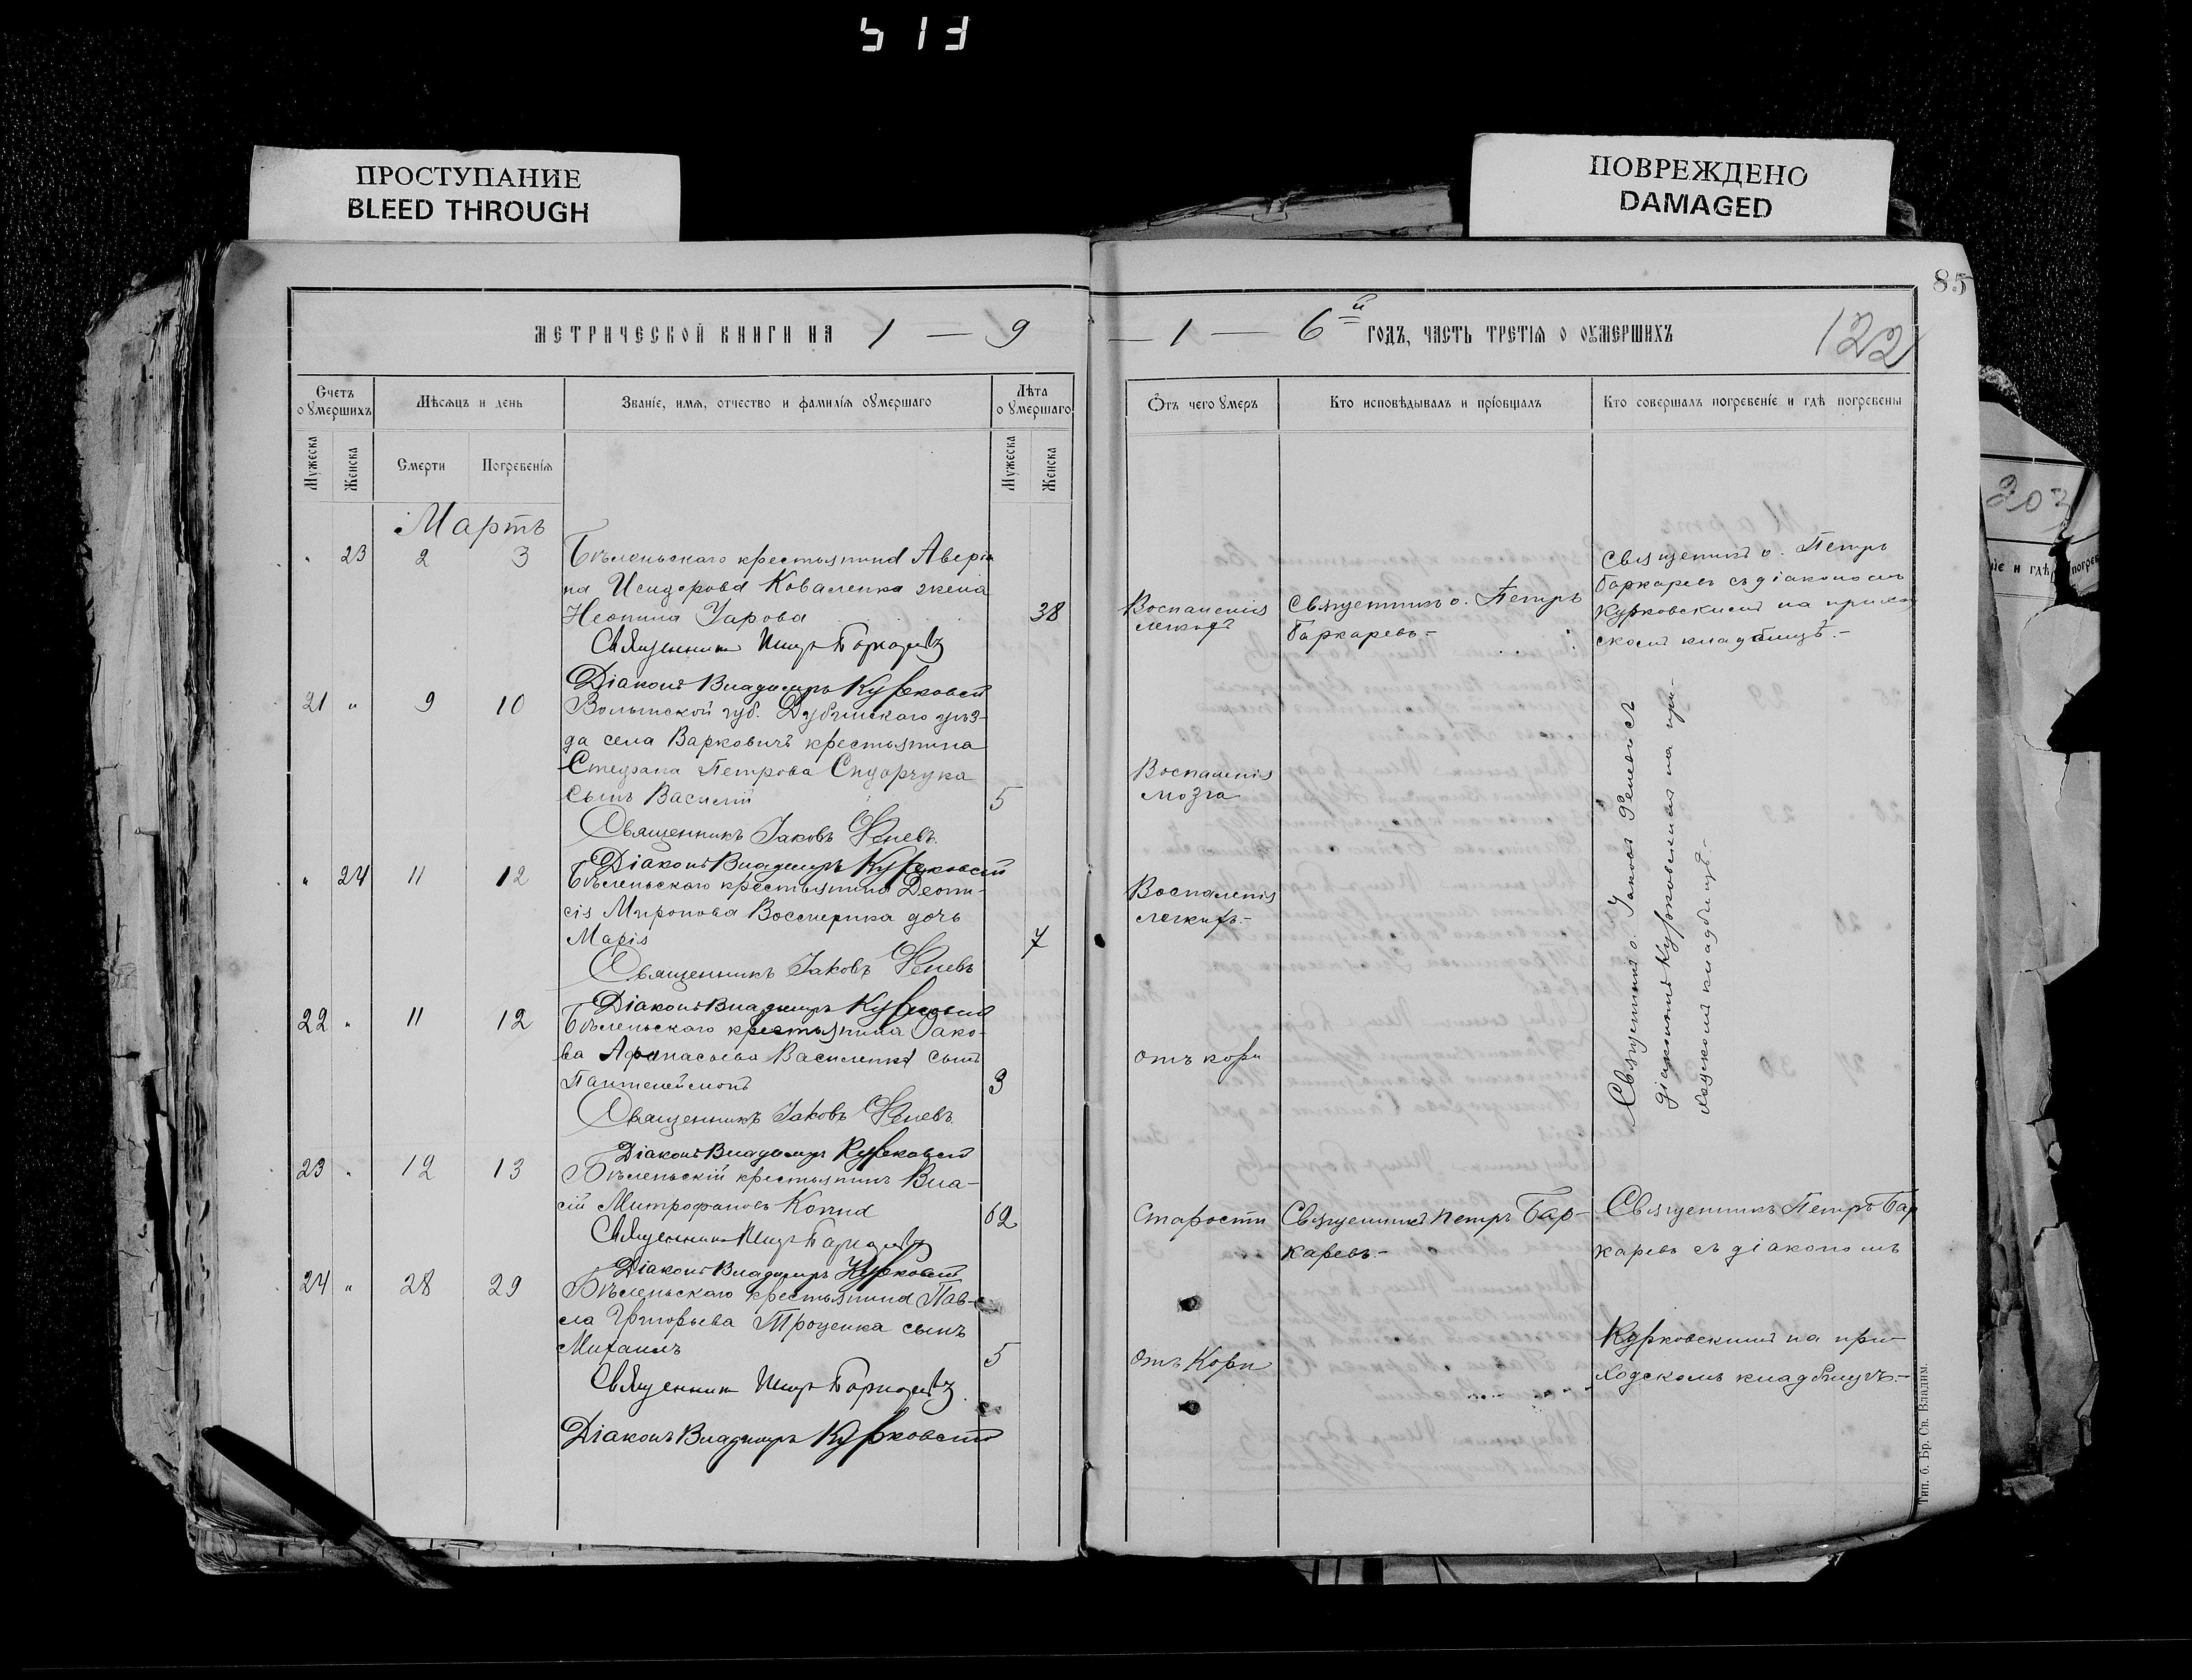 513
ПРОСТУПАНИЕ
BLEED THROUGH
ПОВРЕЖДЕНО
DAMAGED
85
МЕТРИЧЕСКОЙ КНИГИ НА 1 — 9 — 1 — 6й ГОДЪ, ЧАСТЬ ТРЕТІЯ О ОУМЕРШИХЪ
122
Счетъ оумершихъ
Мѣсяцъ и день
Званіе, имя, отчество и фамилія оумершаго
Лѣта оумершаго
Отъ чего умеръ
Кто исповѣдывалъ и пріобщалъ
Кто совершалъ погребеніе и гдѣ погребены
Мужеска
Женска
Смерти
Погребенія
Мужеска
Женска
Мартъ
" 23 2 3
Бѣленьскаго крестьянина Аверія
на Исидорова Коваленка жена
Неонила Уарова
38
Воспаленія
легкихъ
Священникъ о. Петръ
Баркаревъ -
Священникъ о. Петръ
Баркаревъ съ діакономъ
Курковскимъ на приход
скомъ кладбищѣ. -
Священникъ Петръ Баркаревъ
Діаконъ Владимиръ Курковскій
21 " 9 10
Волынской губ. Дубенскаго уѣз-
да села Варковичъ крестьянина
Стефана Петрова Сидорчука
сынъ Василій
5
Воспаленія
мозга
Священникъ о. Іаковъ съ
діакономъ Курковскимъ на при-
ходскомъ кладбищѣ. -
Священникъ Іаковъ
Діаконъ Владимиръ Курковскій
" 24 11 12
Бѣленьскаго крестьянина Деони-
сія Миронова дочь
Марія
7
Воспаленія
легкихъ. -
Священникъ Іаковъ
Діаконъ Владимиръ Курковскій
22 " 11 12
Бѣленьскаго крестьянина Іако-
ва Афанасьева Василенка сынъ
Пантелеймонъ
3
отъ кори
Священникъ Іаковъ
Діаконъ Владимиръ Курковскій
23 " 12 13
Бѣленьскій крестьянинъ Вла-
сій Митрофановъ
62
Старости
Священникъ Петръ Бар-
каревъ. -
Священникъ Петръ Бар
каревъ съ діакономъ
Курковскимъ на при-
ходскомъ кладбищѣ. -
Священникъ Петръ Баркаревъ
Діаконъ Владимиръ Курковскій
24 " 28 29
Бѣленьскаго крестьянина Пав-
ла Григорьева Троценка сынъ
Михаилъ
5
Отъ Кори
Священникъ Петръ Баркаревъ
Діаконъ Владимиръ Курковскій
Тип. б. Бр. Св. Владим.
203